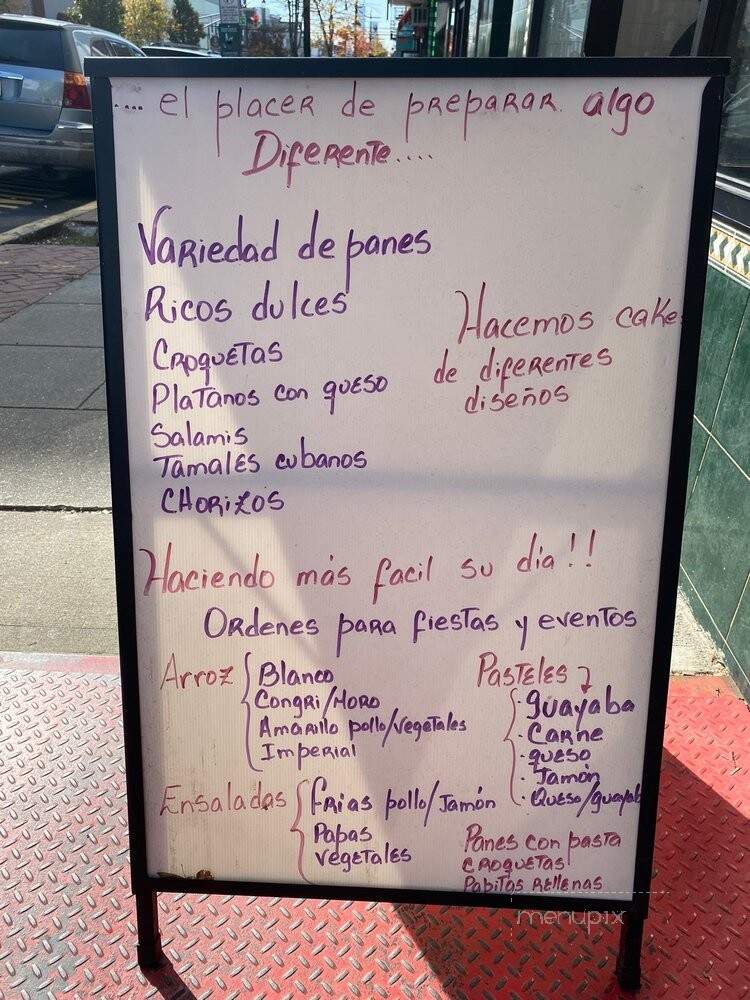 .... el placer de preparar algo
Diferente....
Variedad de panes
Ricos dulces
Croquetas
Platanos con queso
Salamis
Tamales cubanos
CHORIZOS
Hacemos cake
de diferentes
diseños
Haciendo más facil su día!!
Ordenes para fiestas y eventos
Arroz
Blanco
Congri/Moro
Amarillo pollo/vegetales
Imperial
Pasteles
·guayaba
·Carne
·queso
·Jamón
·Queso/guayab
Ensaladas
frias pollo/Jamón
Papas
vegetales
Panes con pasta
croquetas
Papitas rellenas
menupix